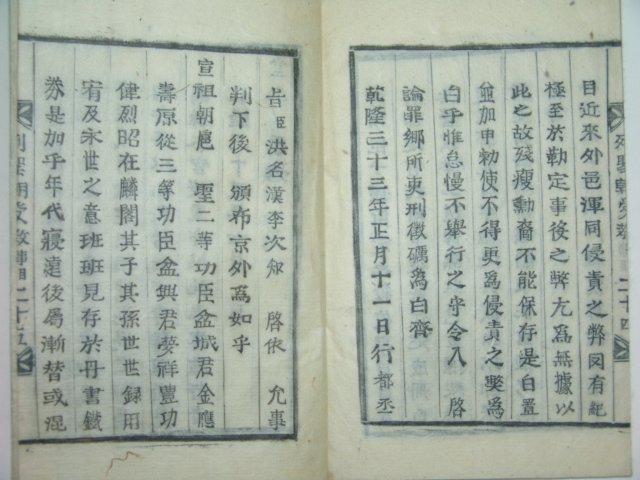 目近來外邑渾同侵責之弊罔有紀
極至於勒定事後之弊尤爲無據以
此之故殘瘦勳裔不能保存是白置
並加申勅使不得更爲侵責之獘爲
白乎惟怠慢不舉行之守令入 啓
論罪鄉所吏刑徵礪爲白齊
乾隆三十三年正月十一日行都丞
旨臣洪名漢李次知 啓依 允事
判下後 頒布京外爲如乎
宣祖朝扈 聖二等功臣盆城君金應
壽原從三等功臣盆興君夢祥豊功
偉烈昭在麟閣其子其孫世世録用
宥及永世之意班班見存於丹書鐵
券是加乎年代寢遠後屬漸替或混
二十四
二十五